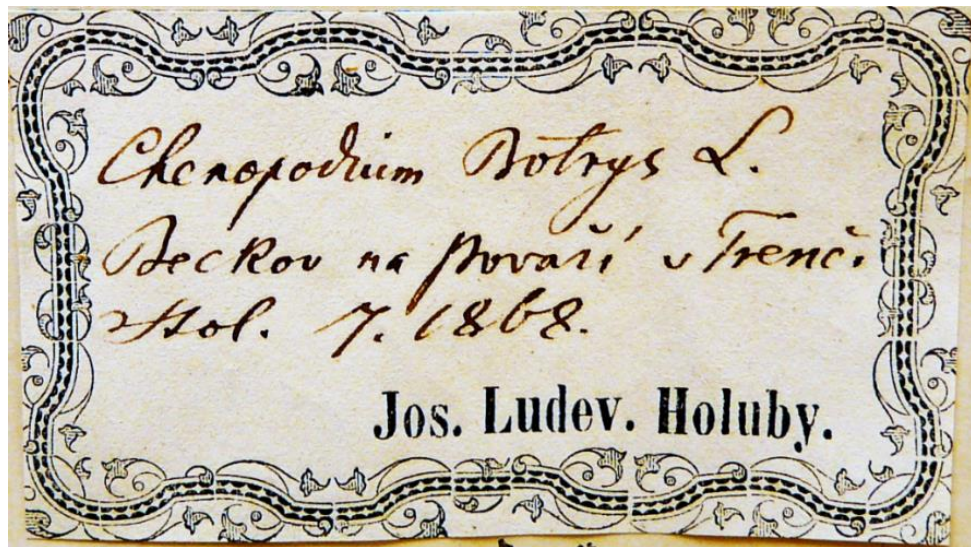 Chenopodium Botrys L.
Beckov na Považí v Trenč.
Stol. 7. 1868.
Jos. Ludev. Holuby.